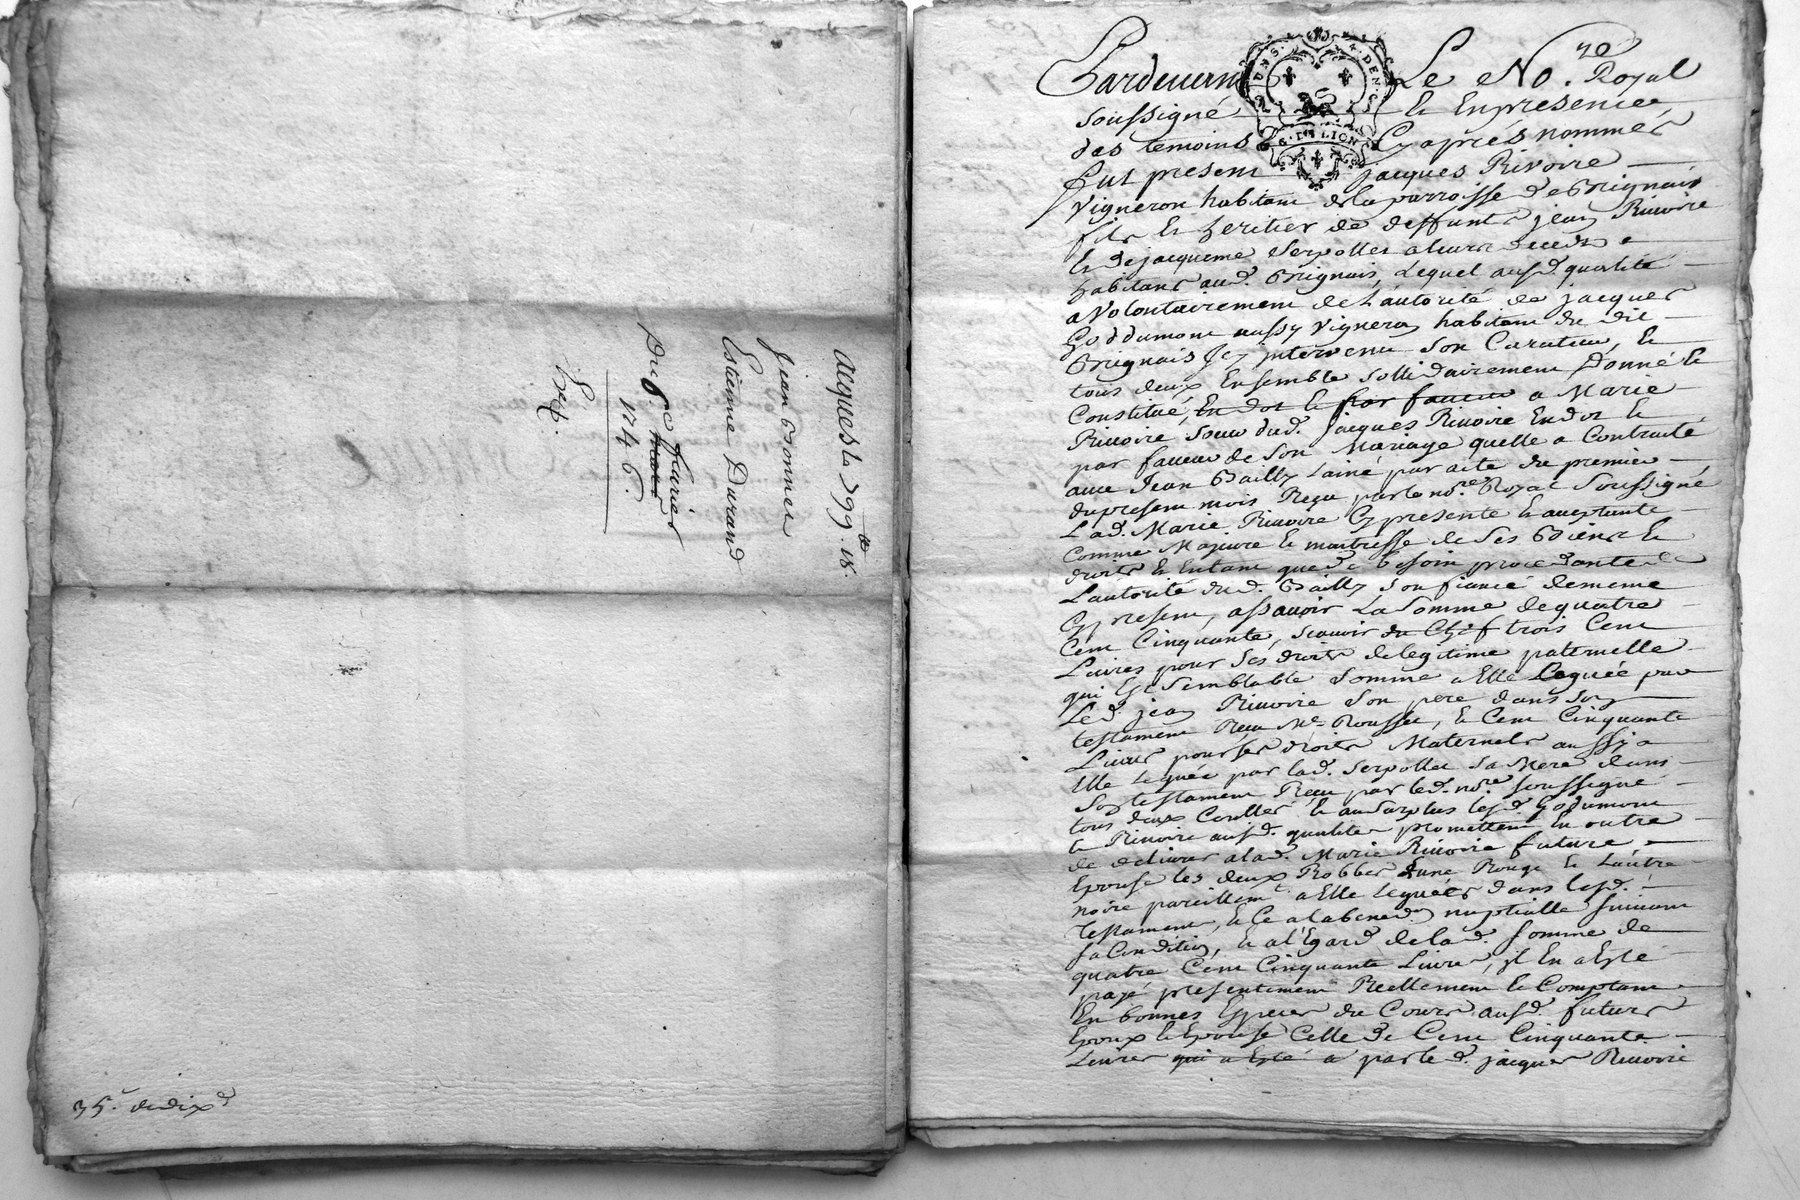 acquest de 299.tt 18.s
jean Bonnet
Estienne Durand
Du 6e
feurier
1746.
Exp.
35.e dedix d
Pardeuant Le No.re Royal
soussigné, & En presence
des temoins Cy aprés nommés
fut present jacques Rivoire
Vigneron habitant de la parroisse de Brignais
fils & heritier de deffunts jean Riuoire
& de jacqueme Serpollet a leurs deceds
habitans aud. Brignais, Lequel ausd. qualité
a Volontairement de L'autorité de jacques
Goddumont aussy Vigneron habitant du dit
Brignais Jcy intervenu son Curateur, &
tous deux Ensemble sollidairement Donné &
Constitué, En dot & par faueur a Marie
Riuoire soeur dud. jacques Riuoire En dot &
par faueur de Son Mariage quelle a Contracté
auec Jean Bailly Lainé par acte du premier
du present mois Reçu par le no.re Royal soussigné
Lad. Marie Riuoire Cy presente & acceptante
Comme Majeure & maitresse de Ses Biens &
droits & Entant que de besoin procedante de
L'autorité dud. Bailly son fiancé demême
Cy present, assauoir La Somme de quatre
Cent Cinquante, scauoir du Chef trois Cent
Liures pour ses droits de legitime paternelle
qui Est semblable Somme a Elle Leguée par
Led. jean Riuoire Son pere dans son
testament Reçu Me Rousset, & Cent Cinquante
Liures pour ses droits Maternels aussy a
Elle Leguée par lad. Serpollet Sa Mere dans
Son testament Reçu par led. no.re soussigné
tous deux Conllés & au surplus lesd. Goddumont
& Riuoire ausd. qualités promettent En outre
de deliurer a lad. Marie Riuoire future
Epouse les deux Robbes d'une Rouge & Lautre
noire pareillem.t a Elle leguées dans lesd.
Testament, & Ce a la bened.on nuptialle suiuant
sa Condition, & a l'Egard de lad. Somme de
quatre Cent Cinquante Liures, jl En a Esté
payé presentement Reellement & Comptant
En bonnes Especes du Cours ausd. futurs
Epoux & Epouse Celle de Cent Cinquante
Liures qui a Esté a par led. jacques Riuoire